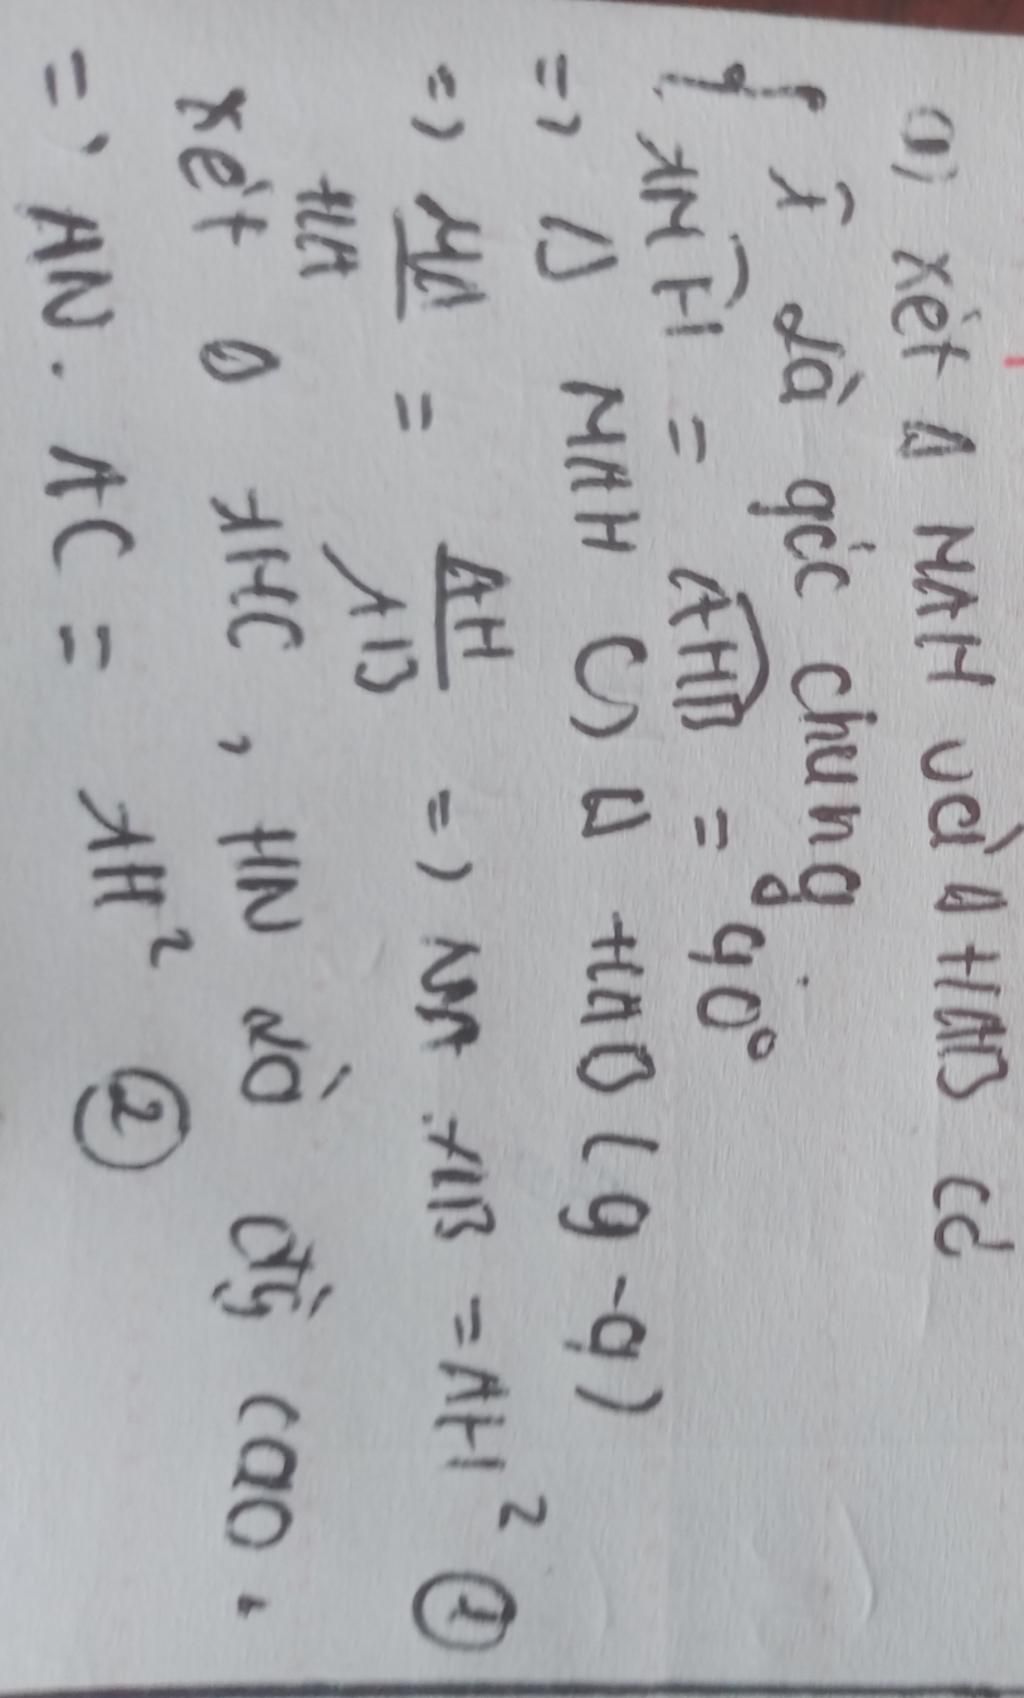 a) xét Δ MAH và Δ HAB có
{ Â là góc chung
AM̂H = AĤB = 90°
=> Δ MAH ∽ Δ HAB (g-g)
=> MA/HA = AH/AB => MA . AB = AH² ①
xét Δ AHC, HN là đg cao.
=> AN . AC = AH² ②